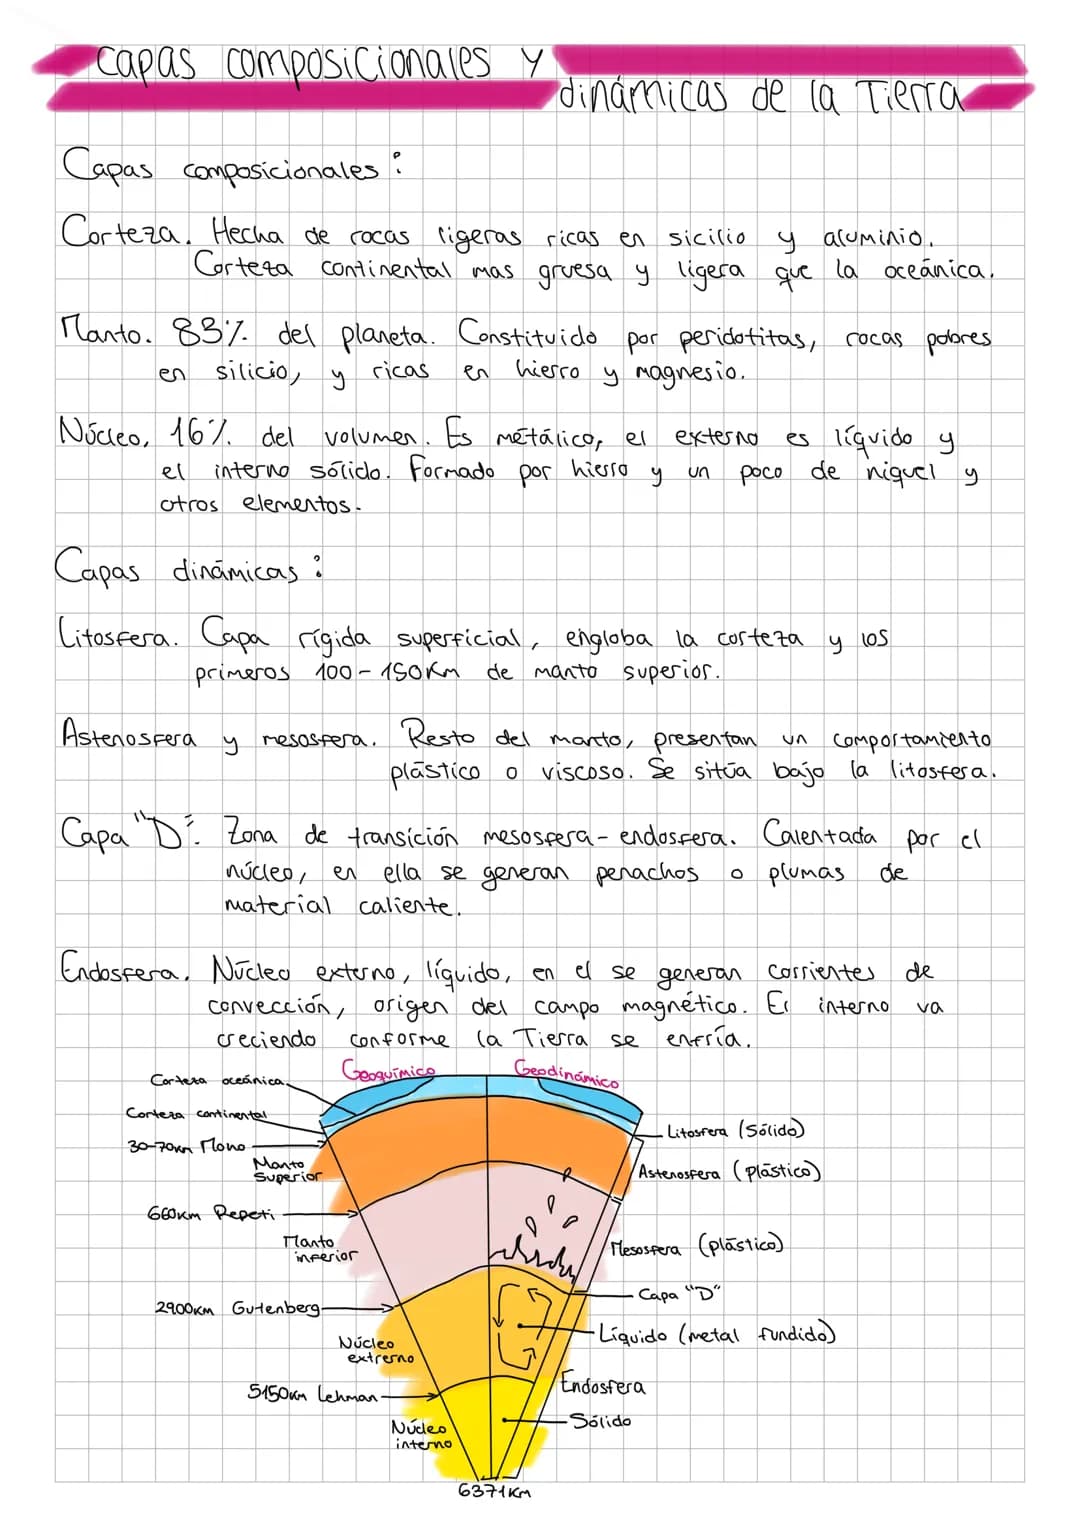 Capas composicionales y
dinámicas de la Tierra
Capas composicionales:
Corteza. Hecha de rocas ligeras ricas en sicilio y aluminio.
Corteza continental mas gruesa y ligera que la oceánica.
Manto. 83% del planeta. Constituido por peridotitas, rocas pobres
en silicio, y ricas en hierro y magnesio.
Núcleo, 16% del volumen. Es metálico, el externo es líquido y
el interno sólido. Formado por hierro y un poco de niquel y
otros elementos.
Capas dinámicas:
Litosfera. Capa rígida superficial, engloba la corteza y los
primeros 100-150Km de manto superior.
Astenosfera y mesosfera. Resto del manto, presentan un comportamiento
plástico o viscoso. Se sitúa bajo la litosfera.
Capa "D". Zona de transición mesosfera-endosfera. Calentada por el
núcleo, en ella se generan penachos o plumas de
material caliente.
Endosfera. Núcleo externo, líquido, en el se generan corrientes de
convección, origen del campo magnético. El interno va
creciendo conforme la Tierra se enfría.
Geoquímico Geodinámico
Corteza oceánica
Corteza continental
30-70km Mono
Manto
Superior
660Km Repeti
Manto
inferior
2900Km Gutenberg
Núcleo
extrerno
5150km Lehman
Núcleo
interno
6371Km
Litosfera (Sólido)
Astenosfera (plástico)
Mesosfera (plástico)
Capa "D"
Líquido (metal fundido)
Endosfera
Sólido